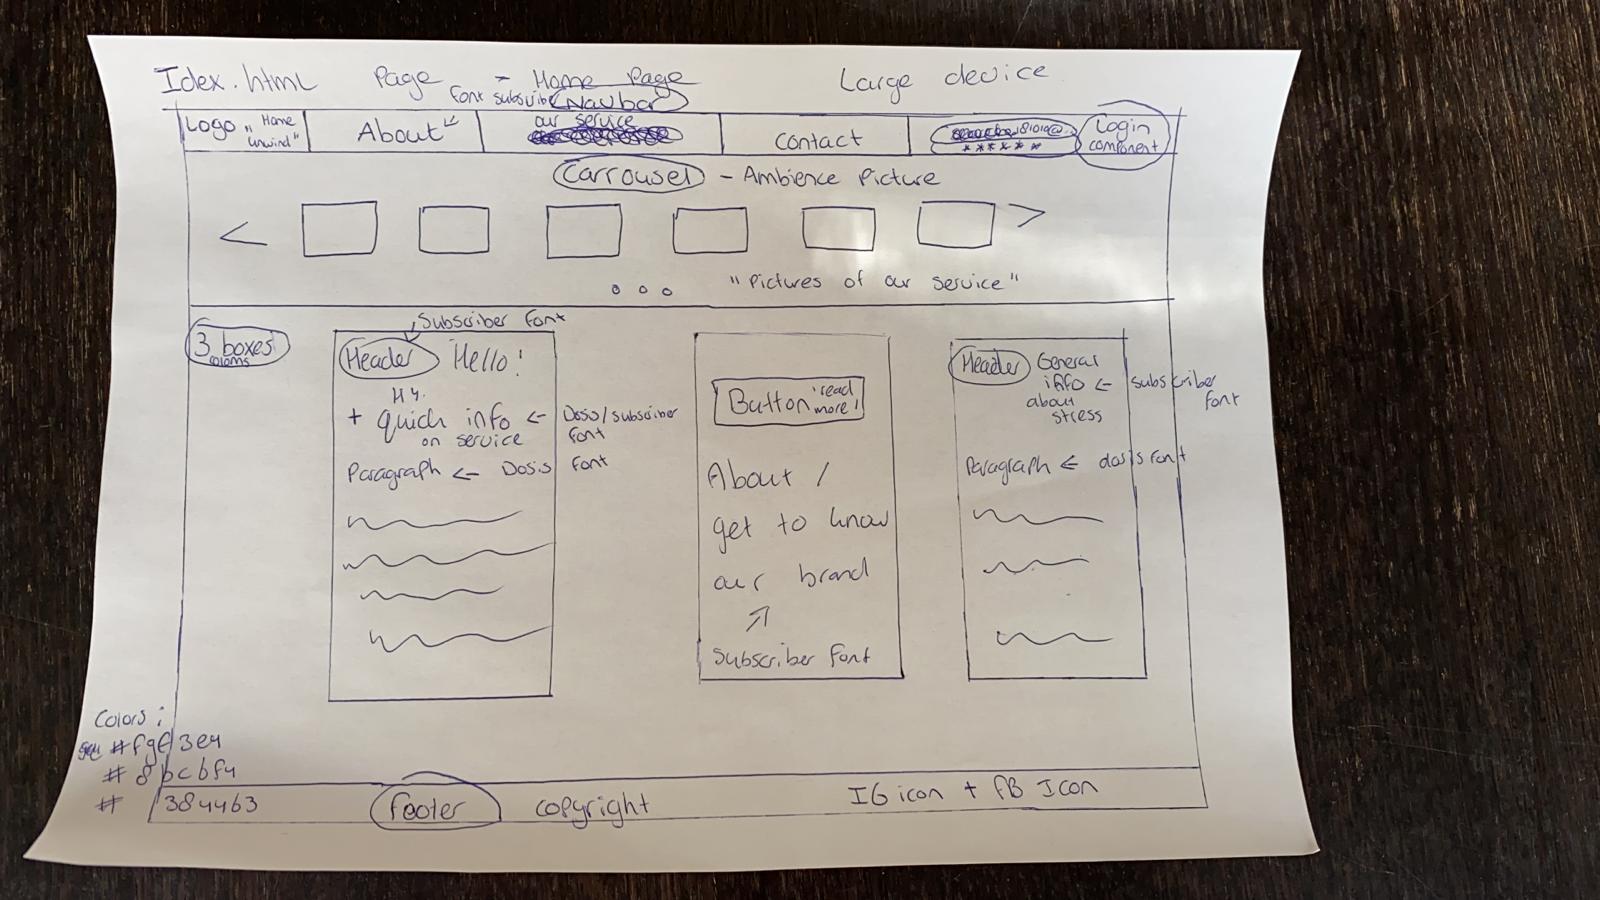 Idex.html Page - Home Page Large device
Font subscribe Navbar
Logo "Home "unwind" About our service contact Login component
******
Carrousel - Ambience Picture
< >
"Pictures of our service"
3 boxes
coloms
Subscriber Font
Header Hello!
H4.
+ quick info ← Dosis/subscriber Font
on service
Paragraph ← Dosis Font
Button 'read more!
About /
get to know
our brand
Subscriber Font
Header General info about stress ← subscriber font
Paragraph ← dosis font
Colors:
#fgf3e4
#8bcbf4
#384463
Footer copyright IG icon + FB Icon